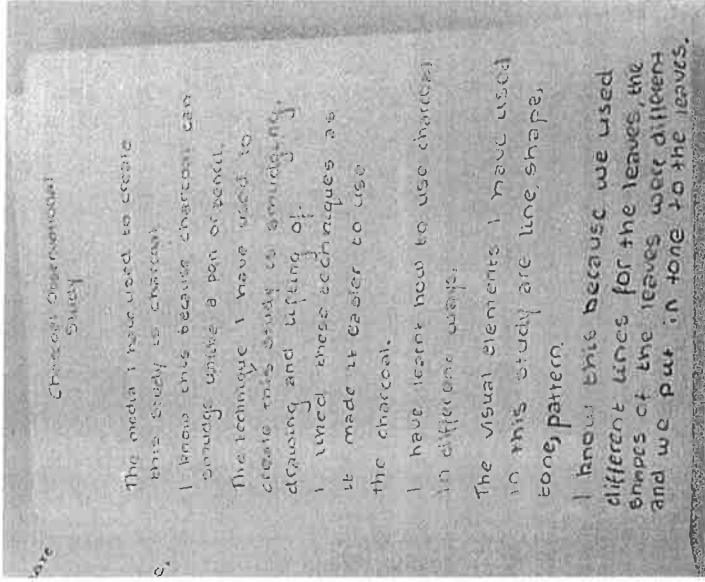 Charcoal Observational
Study
The media I have used to create
this study is charcoal
I know this because charcoal can
smudge unlike a pen or pencil.
The technique I have used to
create this study is smudging,
drawing and lifting of.
I used these techniques as
it made it easier to use
the charcoal.
I have learnt how to use charcoal
in different ways.
The visual elements I have used
in this study are line, shape,
tone, pattern.
I know this because we used
different lines for the leaves, the
shapes of the leaves were different
and we put in tone to the leaves.